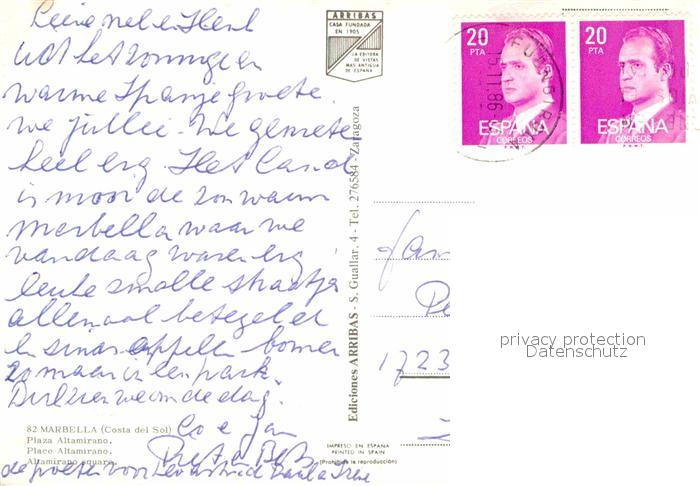 Uit het zonnige en
warme Spanje groete
we jullie. We geniete
heel erg. Het Land
is mooi de zon warm
Marbella waar we
vandaag waren erg
leuke smalle straatjes
allemaal betegeld
en sinasappelen bomen
zo maar in een park.
Co e Jan
de groeten voor
ARRIBAS
CASA FUNDADA
EN 1905
LA EDITORA
DE VISTAS
MAS ANTIGUA
DE ESPAÑA
Ediciones ARRIBAS - S. Guallar, 4 - Tel. 276584 - Zaragoza
20
PTA
ESPAÑA
CORREOS
F.N.M.T.
20
PTA
ESPAÑA
CORREOS
F.N.M.T.
Fam
1723
privacy protection
Datenschutz
82 MARBELLA (Costa del Sol)
Plaza Altamirano.
Place Altamirano.
Altamirano square.
IMPRESO EN ESPAÑA
PRINTED IN SPAIN
(Prohibida la reproducción)